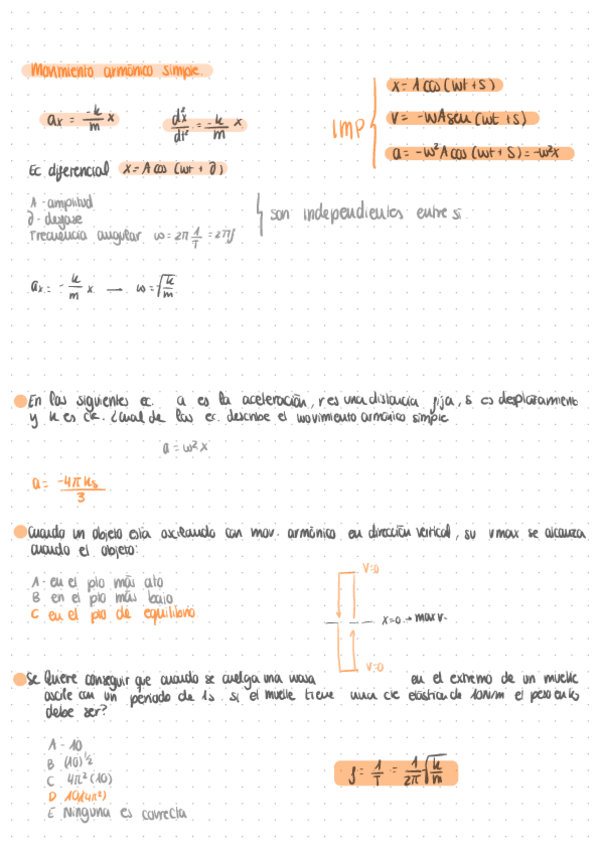 Movimiento armónico simple.
ax = -k/m x
d²x/dt² = -k/m x
IMP
x = A cos (wt + S)
v = -wA sen (wt + S)
a = -w² A cos (wt + S) = -w²x
Ec diferencial x = A cos (wt + ∂)
A - amplitud
∂ - desfase
Frecuencia angular ω = 2π 1/T = 2πf
son independientes entre si
ax = - k/m x. — ω = √k/m
En las siguientes ec. a es la aceleración, r es una distancia fija, s es desplazamiento
y k es cte. ¿cual de las ec. describe el movimiento armónico simple
a = ω² x
a = -4πks/3
Cuando un objeto esta oscilando con mov. armónico en dirección vertical, su vmax se alcanza
cuando el objeto:
A - en el pto más alto
B en el pto más bajo
C en el pto de equilibrio
V=0
x=0 → max v.
V=0
Se quiere conseguir que cuando se cuelga una masa en el extremo de un muelle
oscile con un periodo de 1s. si el muelle tiene una cte elástica de 10N/m el peso
debe ser?
A - 10
B (10)^1/2
C 4π² (10)
D 10/(4π²)
E Ninguna es correcta
f = 1/T = 1/2π √k/m